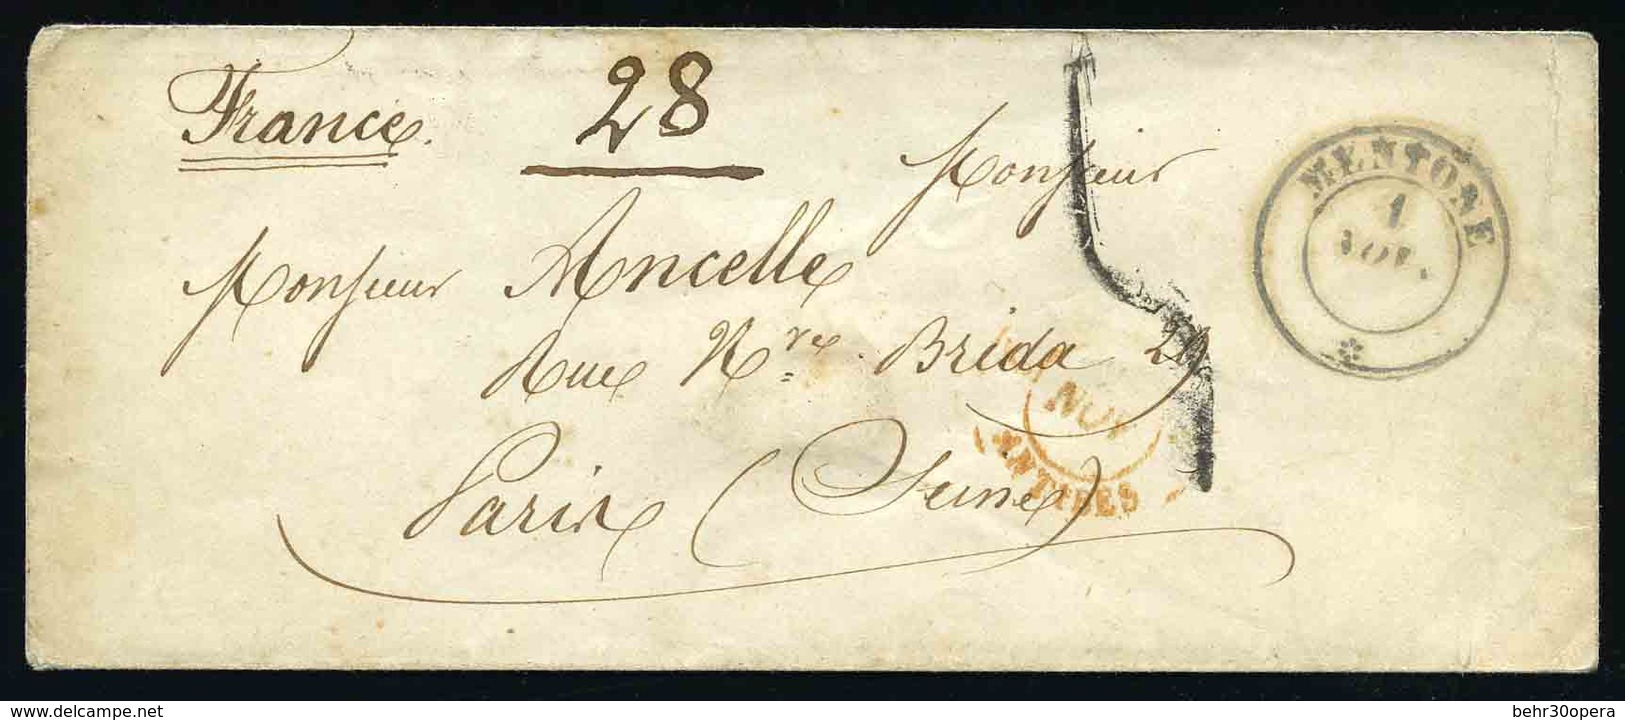 France.
28
Monsieur
Monsieur Ancelle
Rue N.re Brida 29
Paris (Seine)
MENTONE
1
NOV.
NOV
ANTIBES
www.delcampe.net
behr30opera